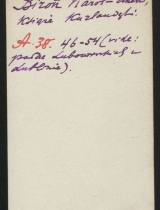 Biron Karol-
Książe Kurlandzki
A. 38. 46-54 (vide:
pałac Lubomirskich w
Lublinie).